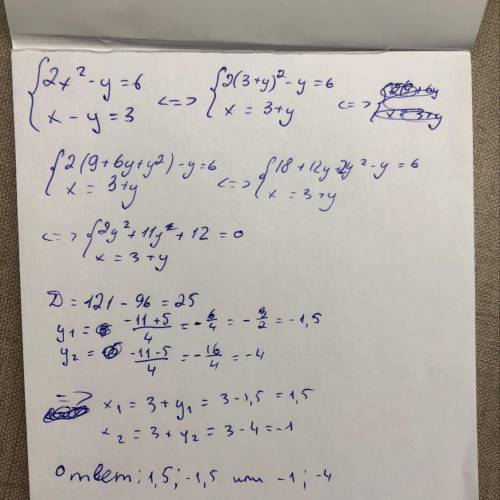 {2x² - y = 6 {2(3+y)² - y = 6
{x - y = 3 <=> {x = 3+y <=>
{2(9+6y+y²) - y = 6 {18 + 12y + 2y² - y = 6
{x = 3+y <=> {x = 3+y
<=> {2y² + 11y + 12 = 0
{x = 3+y
D = 121 - 96 = 25
y₁ = (-11+5)/4 = -6/4 = -3/2 = -1,5
y₂ = (-11-5)/4 = -16/4 = -4
=> x₁ = 3 + y₁ = 3 - 1,5 = 1,5
x₂ = 3 + y₂ = 3 - 4 = -1
Ответ: 1,5; -1,5 или -1; -4